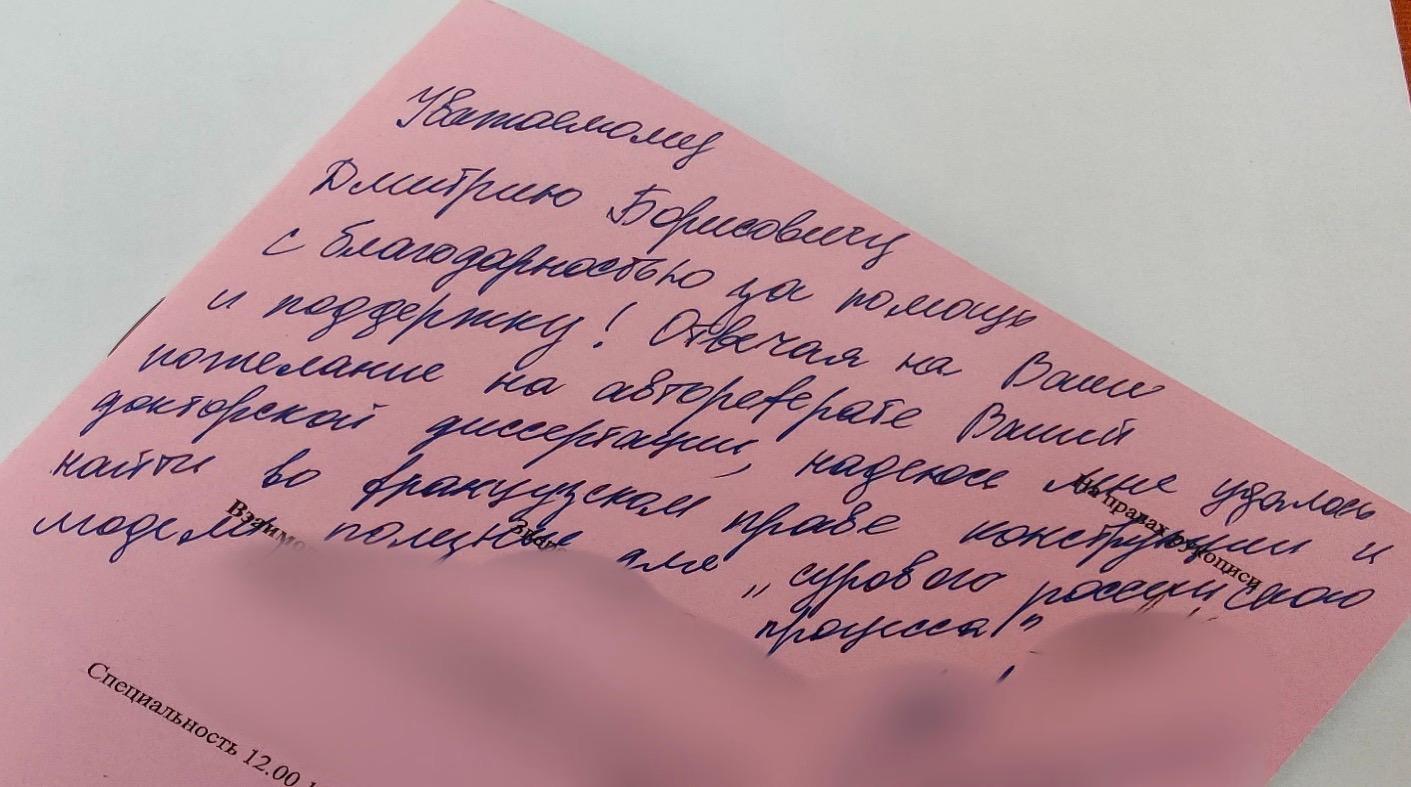 Уважаемому
Дмитрию Борисовичу
с благодарностью за помощь
и поддержку! Отвечая на Ваше
пожелание на автореферате Вашей
докторской диссертации, надеюсь мне удалось
найти во французском праве конструкции и
модели полезные для "сурового российского
процесса!"
На правах рукописи
Взаимо
Специальность 12.00